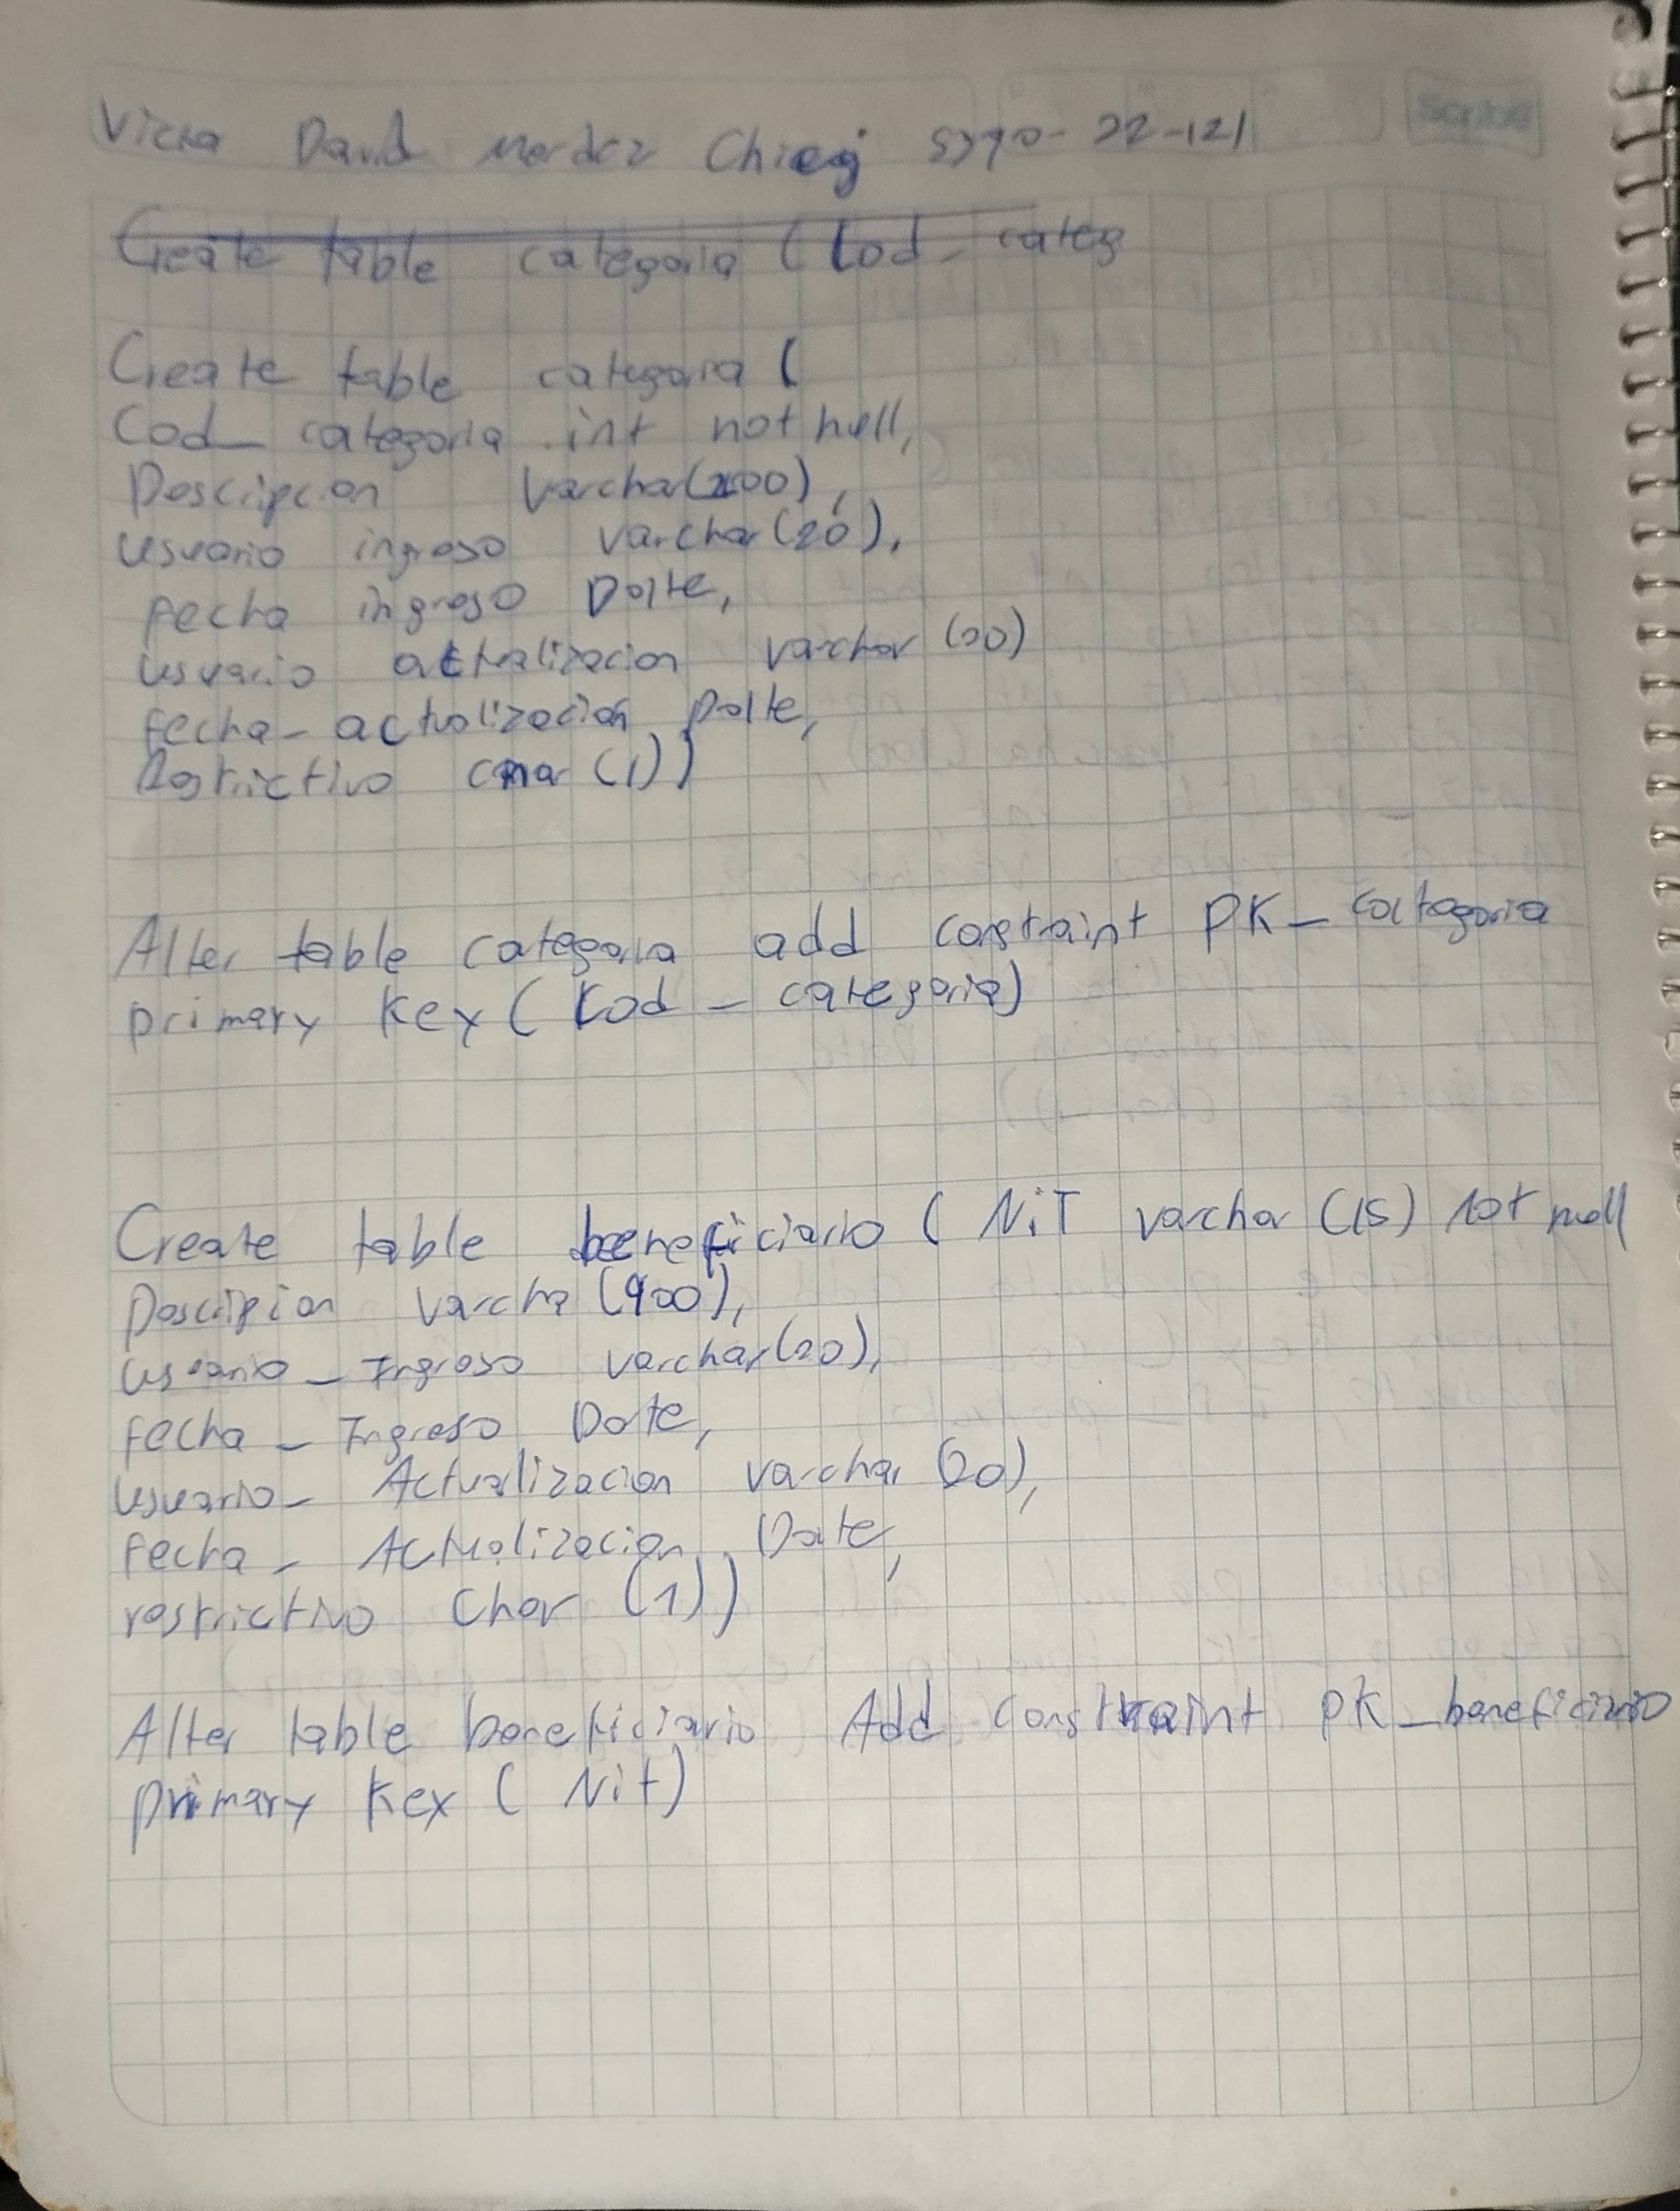 David Mendez 5790-22-121
Create table categoria (Cod_categ
Create table categoria (
Cod_categoria int not null,
Descripcion Varchar(200),
Usuario ingreso varchar(20),
Fecha ingreso Date,
Usuario actualizacion varchar (20)
Fecha_actualización Date,
Restrictivo char (1))
Alter table categoria add constraint PK_categoria
primary Key (Cod_categoria)
Create table beneficiario ( NiT varchar (15) not null
Descripion Varchar (400),
Usuario_Ingreso varchar(20),
Fecha_Ingreso Date,
Usuario_Actualizacion varchar (20),
Fecha_Actualizacion Date,
restrictivo Char (1))
Alter table beneficiario Add constraint PK_beneficiario
primary Key ( Nit)